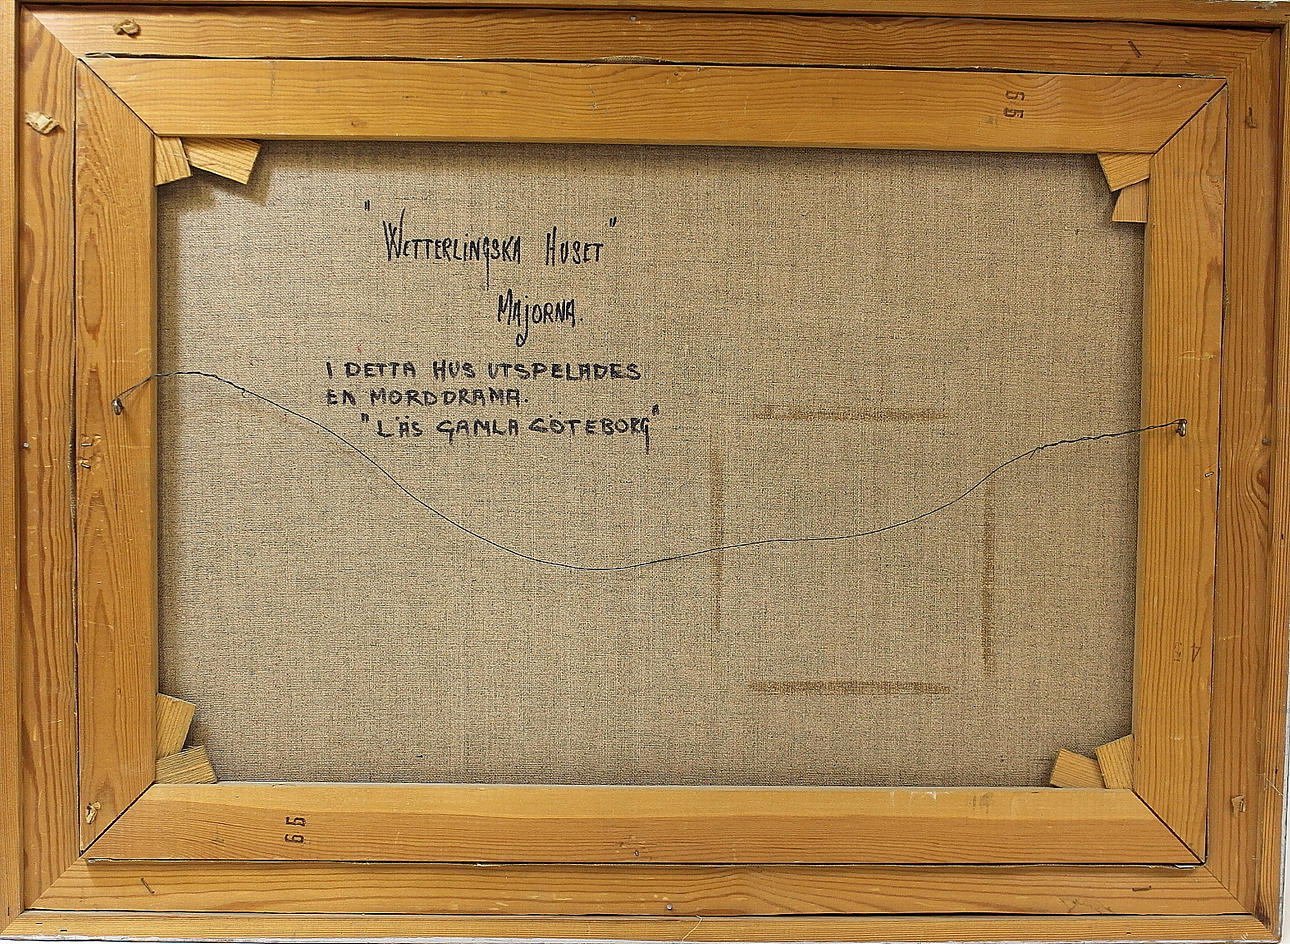 "WETTERLINGSKA HUSET"
MAJORNA.
I DETTA HUS UTSPELADES
EN MORDDRAMA.
"LÄS GAMLA GÖTEBORG"
65
45
65